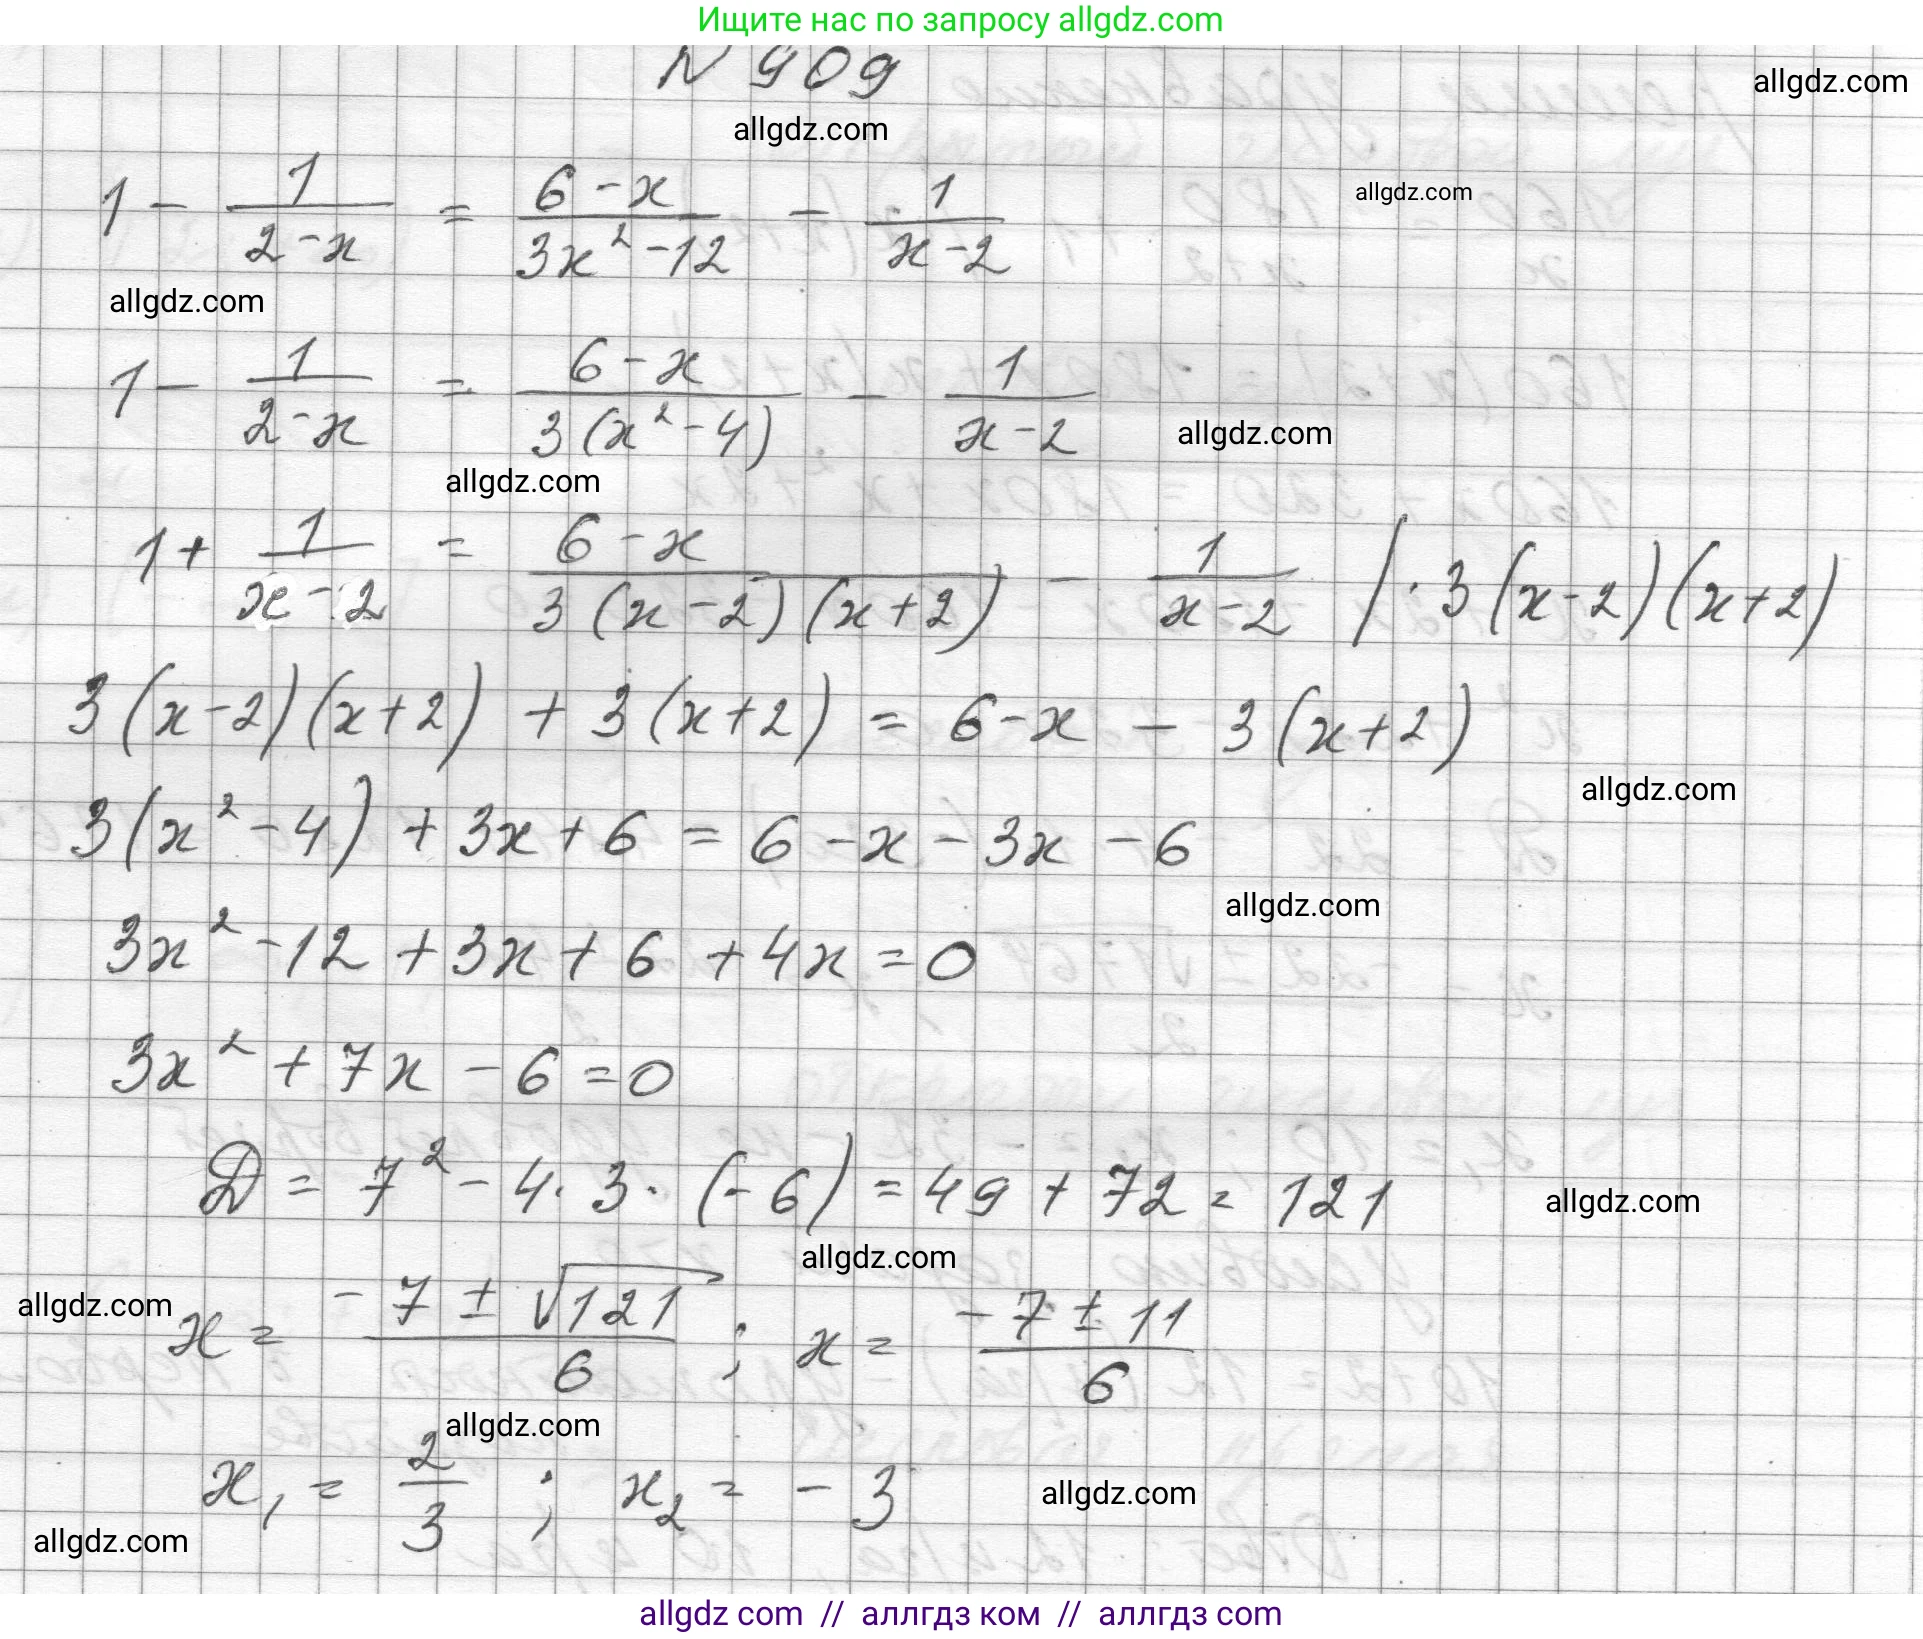 Ищите нас по запросу allgdz.com
N 909
allgdz.com
allgdz.com
1 - 1/(2-x) = (6-x)/(3x² - 12) - 1/(x-2)
allgdz.com
allgdz.com
1 - 1/(2-x) = (6-x)/(3(x² - 4)) - 1/(x-2)
allgdz.com
allgdz.com
1 + 1/(x-2) = (6-x)/(3(x-2)(x+2)) - 1/(x-2) / · 3(x-2)(x+2)
3(x-2)(x+2) + 3(x+2) = 6-x - 3(x+2)
allgdz.com
3(x² - 4) + 3x + 6 = 6 - x - 3x - 6
allgdz.com
3x² - 12 + 3x + 6 + 4x = 0
3x² + 7x - 6 = 0
D = 7² - 4 · 3 · (-6) = 49 + 72 = 121
allgdz.com
allgdz.com
allgdz.com
x = (-7 ± √121)/6 ; x = (-7 ± 11)/6
allgdz.com
x₁ = 2/3 ; x₂ = -3
allgdz.com
allgdz.com
allgdz com // аллгдз ком // аллгдз com